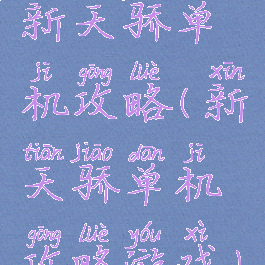 新天骄单
jī gōng lüè xīn
机攻略(新
tiān jiāo dān jī
天骄单机
gōng lüè yóu xì
攻略游戏)